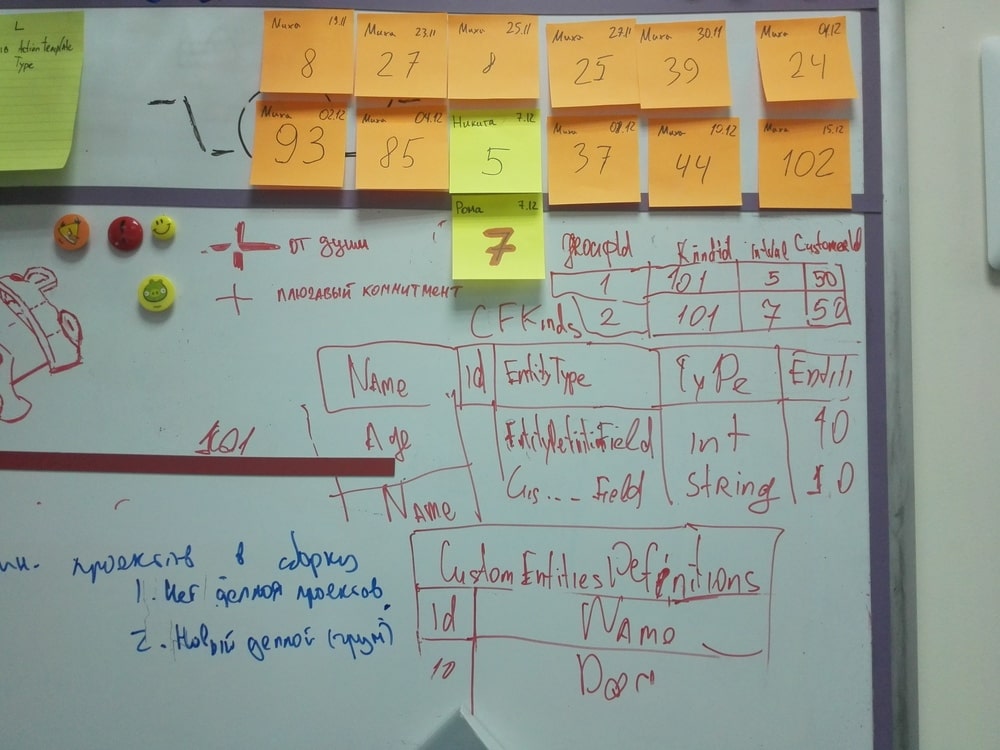 L
Action Template
Type.
Миха 19.11
8
Миха 23.11
27
Миха 25.11
8
Миха 27.11
25
Миха 30.11
39
Миха 01.12
24
Миха 02.12
93
Миха 04.12
85
Никита 7.12
5
Миха 08.12
37
Миха 10.12
44
Миха 15.12
102
Рома 7.12
7
+ от души
+ плюгавый коммитмент
groupId KindId CustomerId
1 101 5 50
2 101 7 50
CFKinds
Name Id EntityType Type Entiti
101 Age EntityDefinitionField int 10
Name Cus... Field String 10
проектов в сборки
1. Нег деплоя проектов.
2. Новый деплой (грум?)
CustomEntitiesDefinitions
Id Name
10 Door